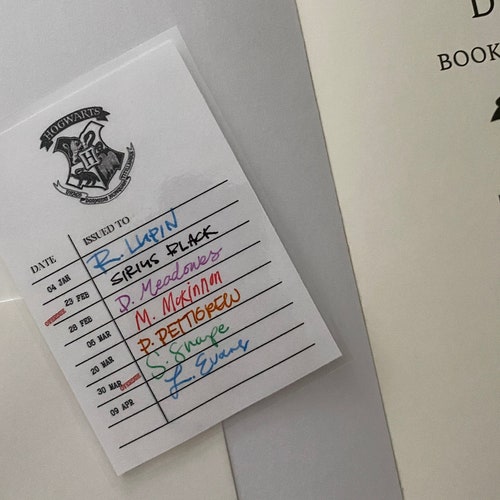 HOGWARTS
H
DATE ISSUED TO
04 JAN R. LUPIN
23 FEB SIRIUS BLACK
OVERDUE
28 FEB D. Meadowes
06 MAR M. McKinnon
20 MAR P. PETTIGREW
30 MAR S. Snape
OVERDUE
09 APR L. Evans
D
BOOK